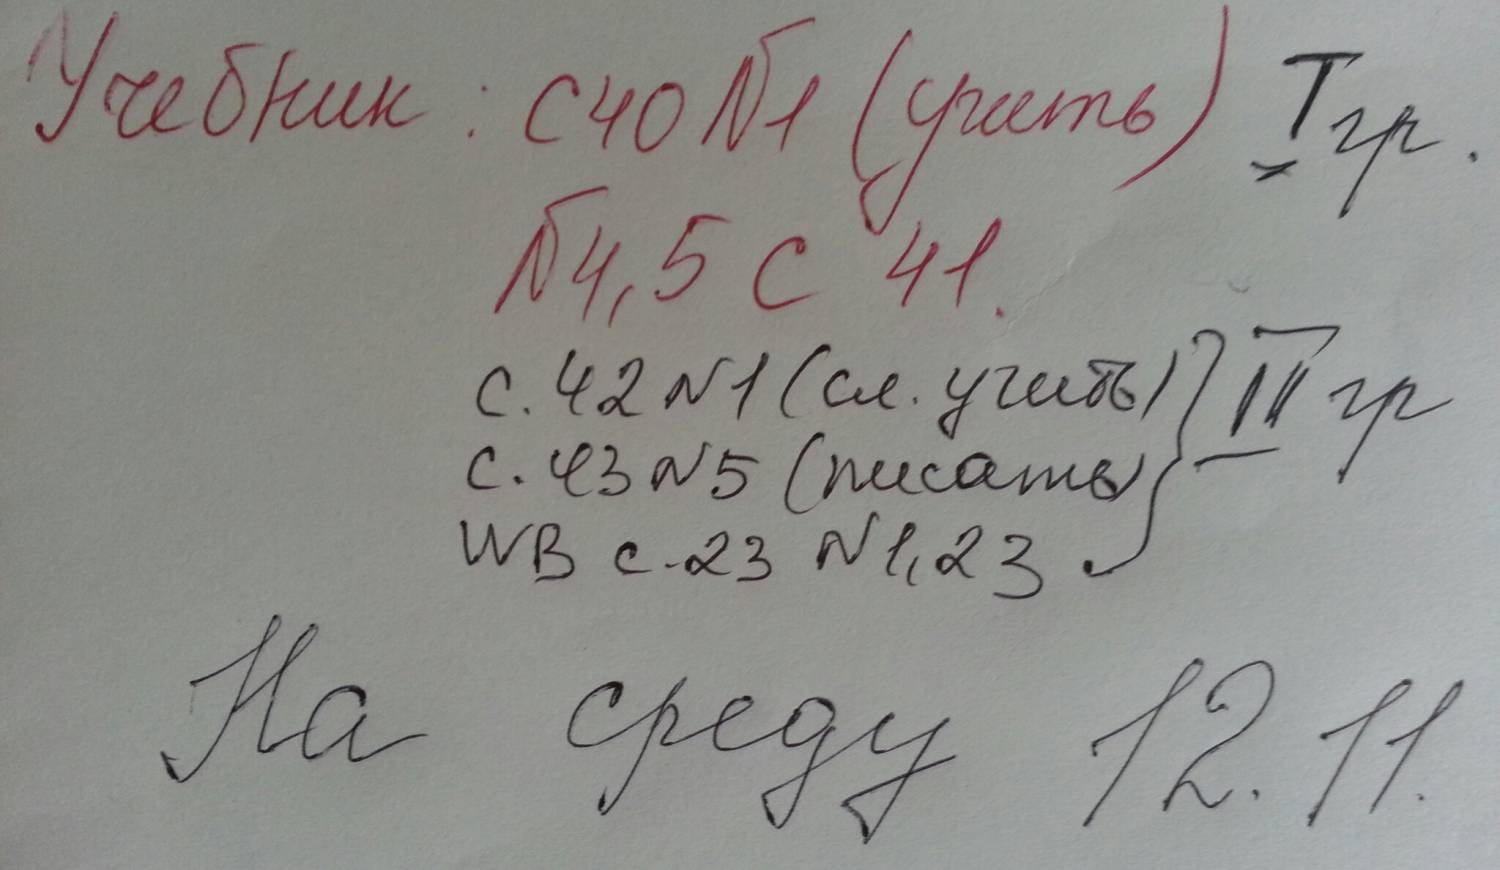 Учебник: с 40 №1 (учить) I гр.
№4,5 с 41.
с. 42 №1 (сл. учить) } II гр
с. 43 №5 (писать)
WB с. 23 №1,2 3.
На среду 12.11.